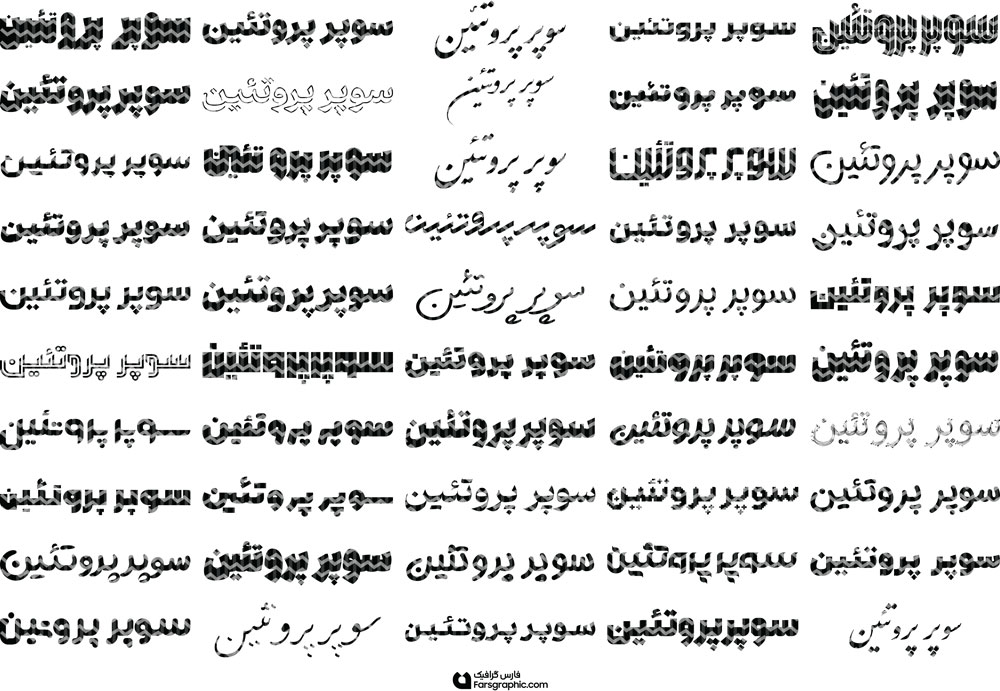 سوپر پروتئین سوپر پروتئین سوپر پروتئین سوپر پروتئین سوپر پروتئین
سوپر پروتئین سوپر پروتئین سوپر پروتئین سوپر پروتئین سوپر پروتئین
سوپر پروتئین سوپر پروتئین سوپر پروتئین سوپر پروتئین سوپر پروتئین
سوپر پروتئین سوپر پروتئین سوپر پروتئین سوپر پروتئین سوپر پروتئین
سوپر پروتئین سوپر پروتئین سوپر پروتئین سوپر پروتئین سوپر پروتئین
سوپر پروتئین سوپر پروتئین سوپر پروتئین سوپر پروتئین سوپر پروتئین
سوپر پروتئین سوپر پروتئین سوپر پروتئین سوپر پروتئین سوپر پروتئین
سوپر پروتئین سوپر پروتئین سوپر پروتئین سوپر پروتئین سوپر پروتئین
سوپر پروتئین سوپر پروتئین سوپر پروتئین سوپر پروتئین سوپر پروتئین
سوپر پروتئین سوپر پروتئین سوپر پروتئین سوپر پروتئین سوپر پروتئین
فارس گرافیک
Farsgraphic.com